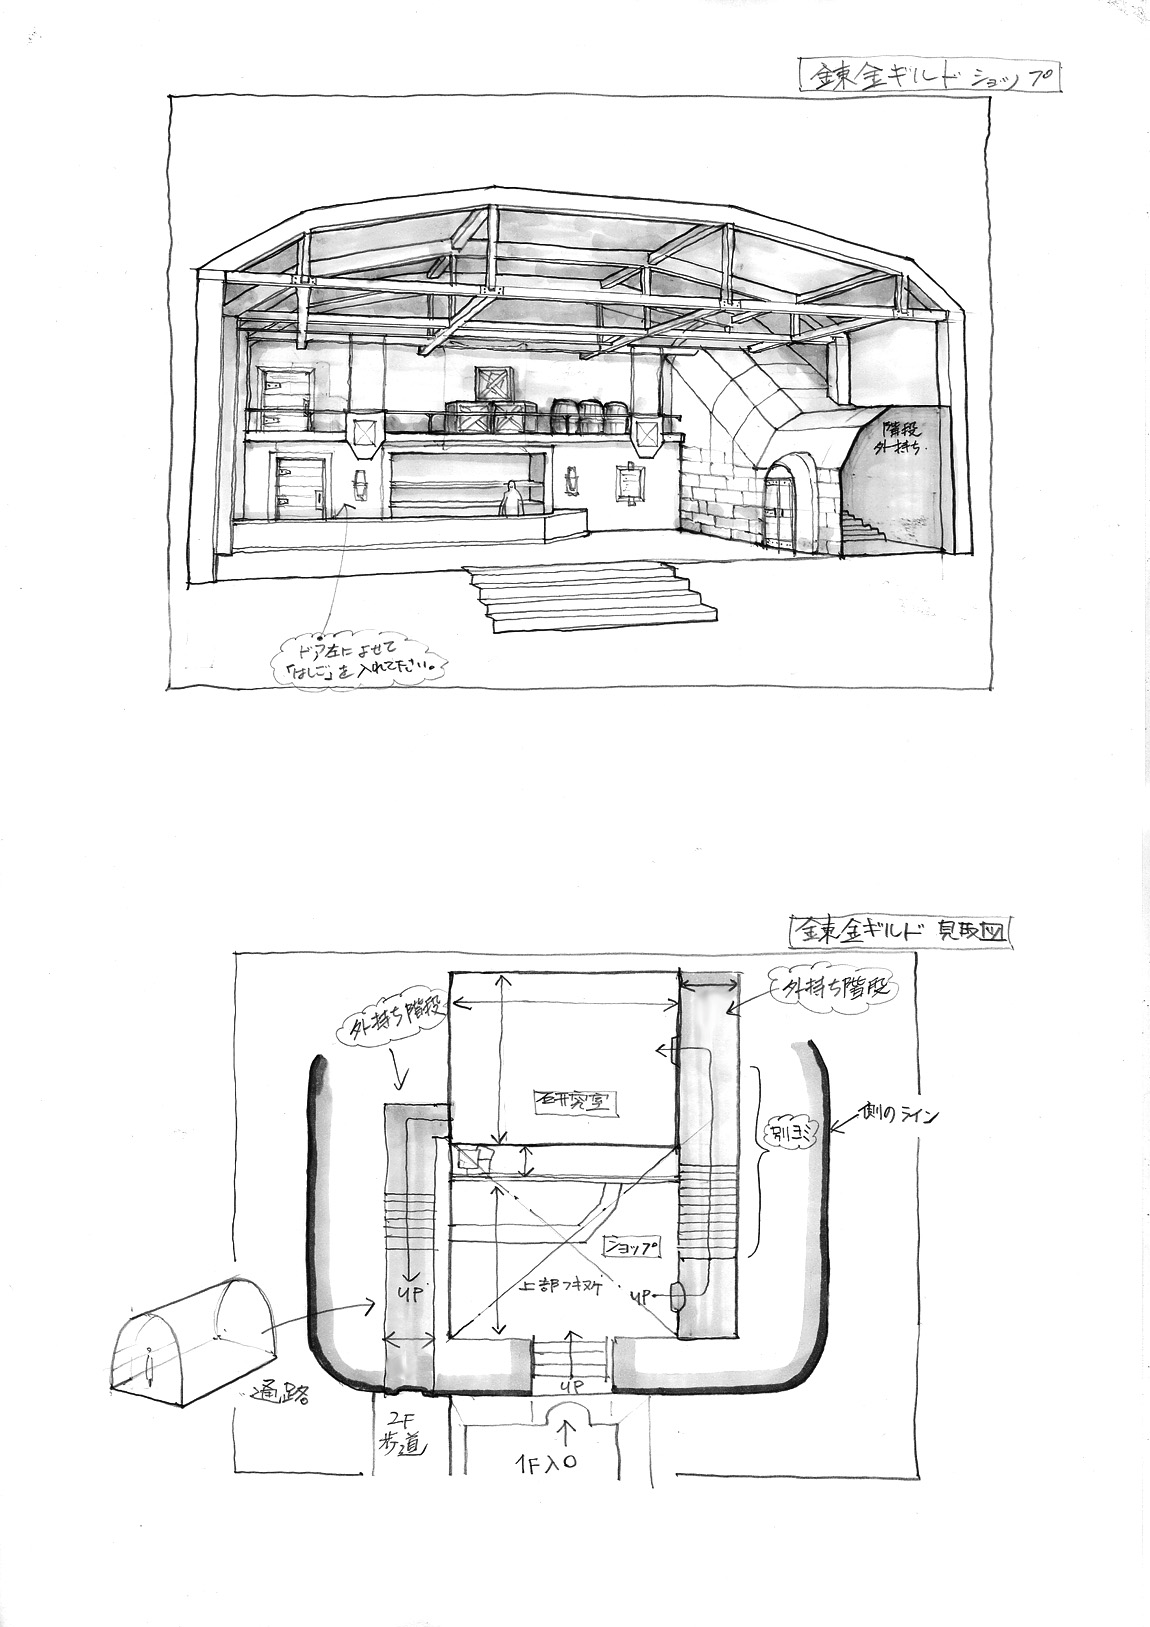 錬金ギルド ショップ
階段
外持ち.
ドア左によせて
「はしご」を入れて下さい。
錬金ギルド 見取図
外持ち階段
外持ち階段
側のライン
研究室
別ヨミ
ショップ
上部フキヌケ
UP
UP
通路
UP
2F
歩道
1F入口